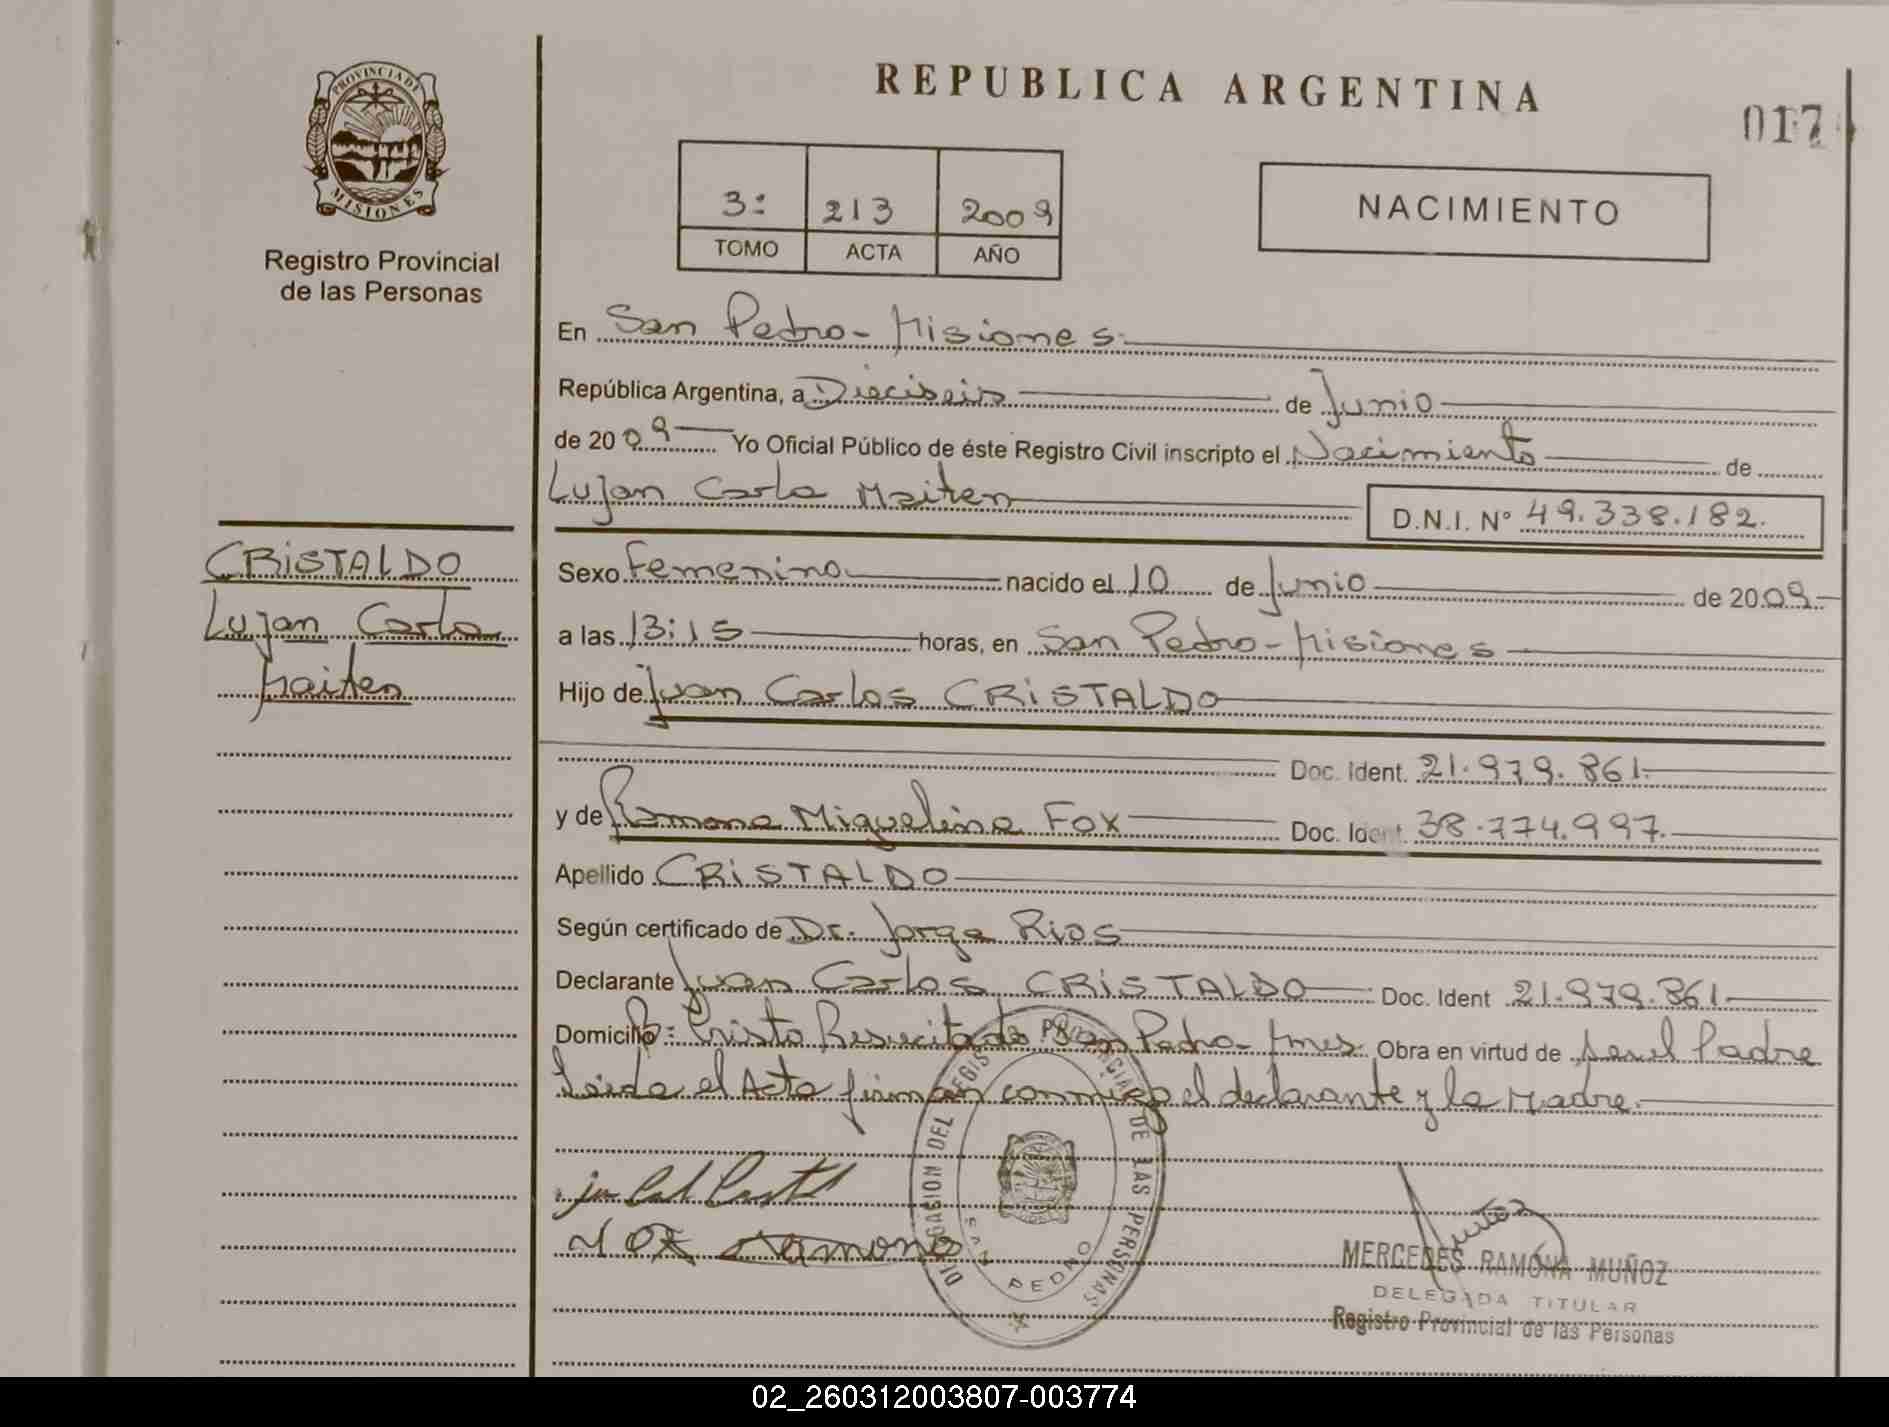 REPUBLICA ARGENTINA
017
PROVINCIA DE
MISIONES
Registro Provincial
de las Personas
3º 213 2009
TOMO ACTA AÑO
NACIMIENTO
En San Pedro - Misiones.
República Argentina, a Dieciseis de Junio
de 2009 Yo Oficial Público de éste Registro Civil inscripto el Nacimiento de
Lujan Carla Maiten
D.N.I. Nº 49.338.182.
CRISTALDO
Lujan Carla
Maiten
Sexo Femenino nacido el 10 de Junio de 2009
a las 13:15 horas, en San Pedro - Misiones
Hijo de Juan Carlos CRISTALDO
Doc. Ident. 21.979.861.
y de Ramona Miguelina FOX Doc. Ident. 38.774.997.
Apellido CRISTALDO
Según certificado de Dr. Jorge Rios
Declarante Juan Carlos CRISTALDO Doc. Ident 21.979.861
Domicilio Bº: Cristo Resucitado San Pedro - Mnes. Obra en virtud de ser el Padre
Leida el Acta firman conmigo el declarante y la Madre.
DELEGASION DEL REGISTRO PROVINCIAL DE LAS PERSONAS
SAN PEDRO
FOX Ramona
Muñoz
MERCEDES RAMONA MUÑOZ
DELEGADA TITULAR
Registro Provincial de las Personas
02_260312003807-003774